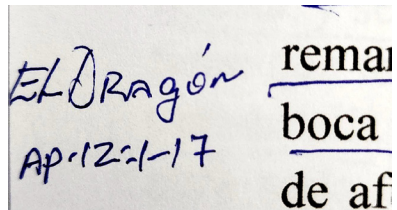 El Dragón
Ap.12:1-17
remar
boca
de af